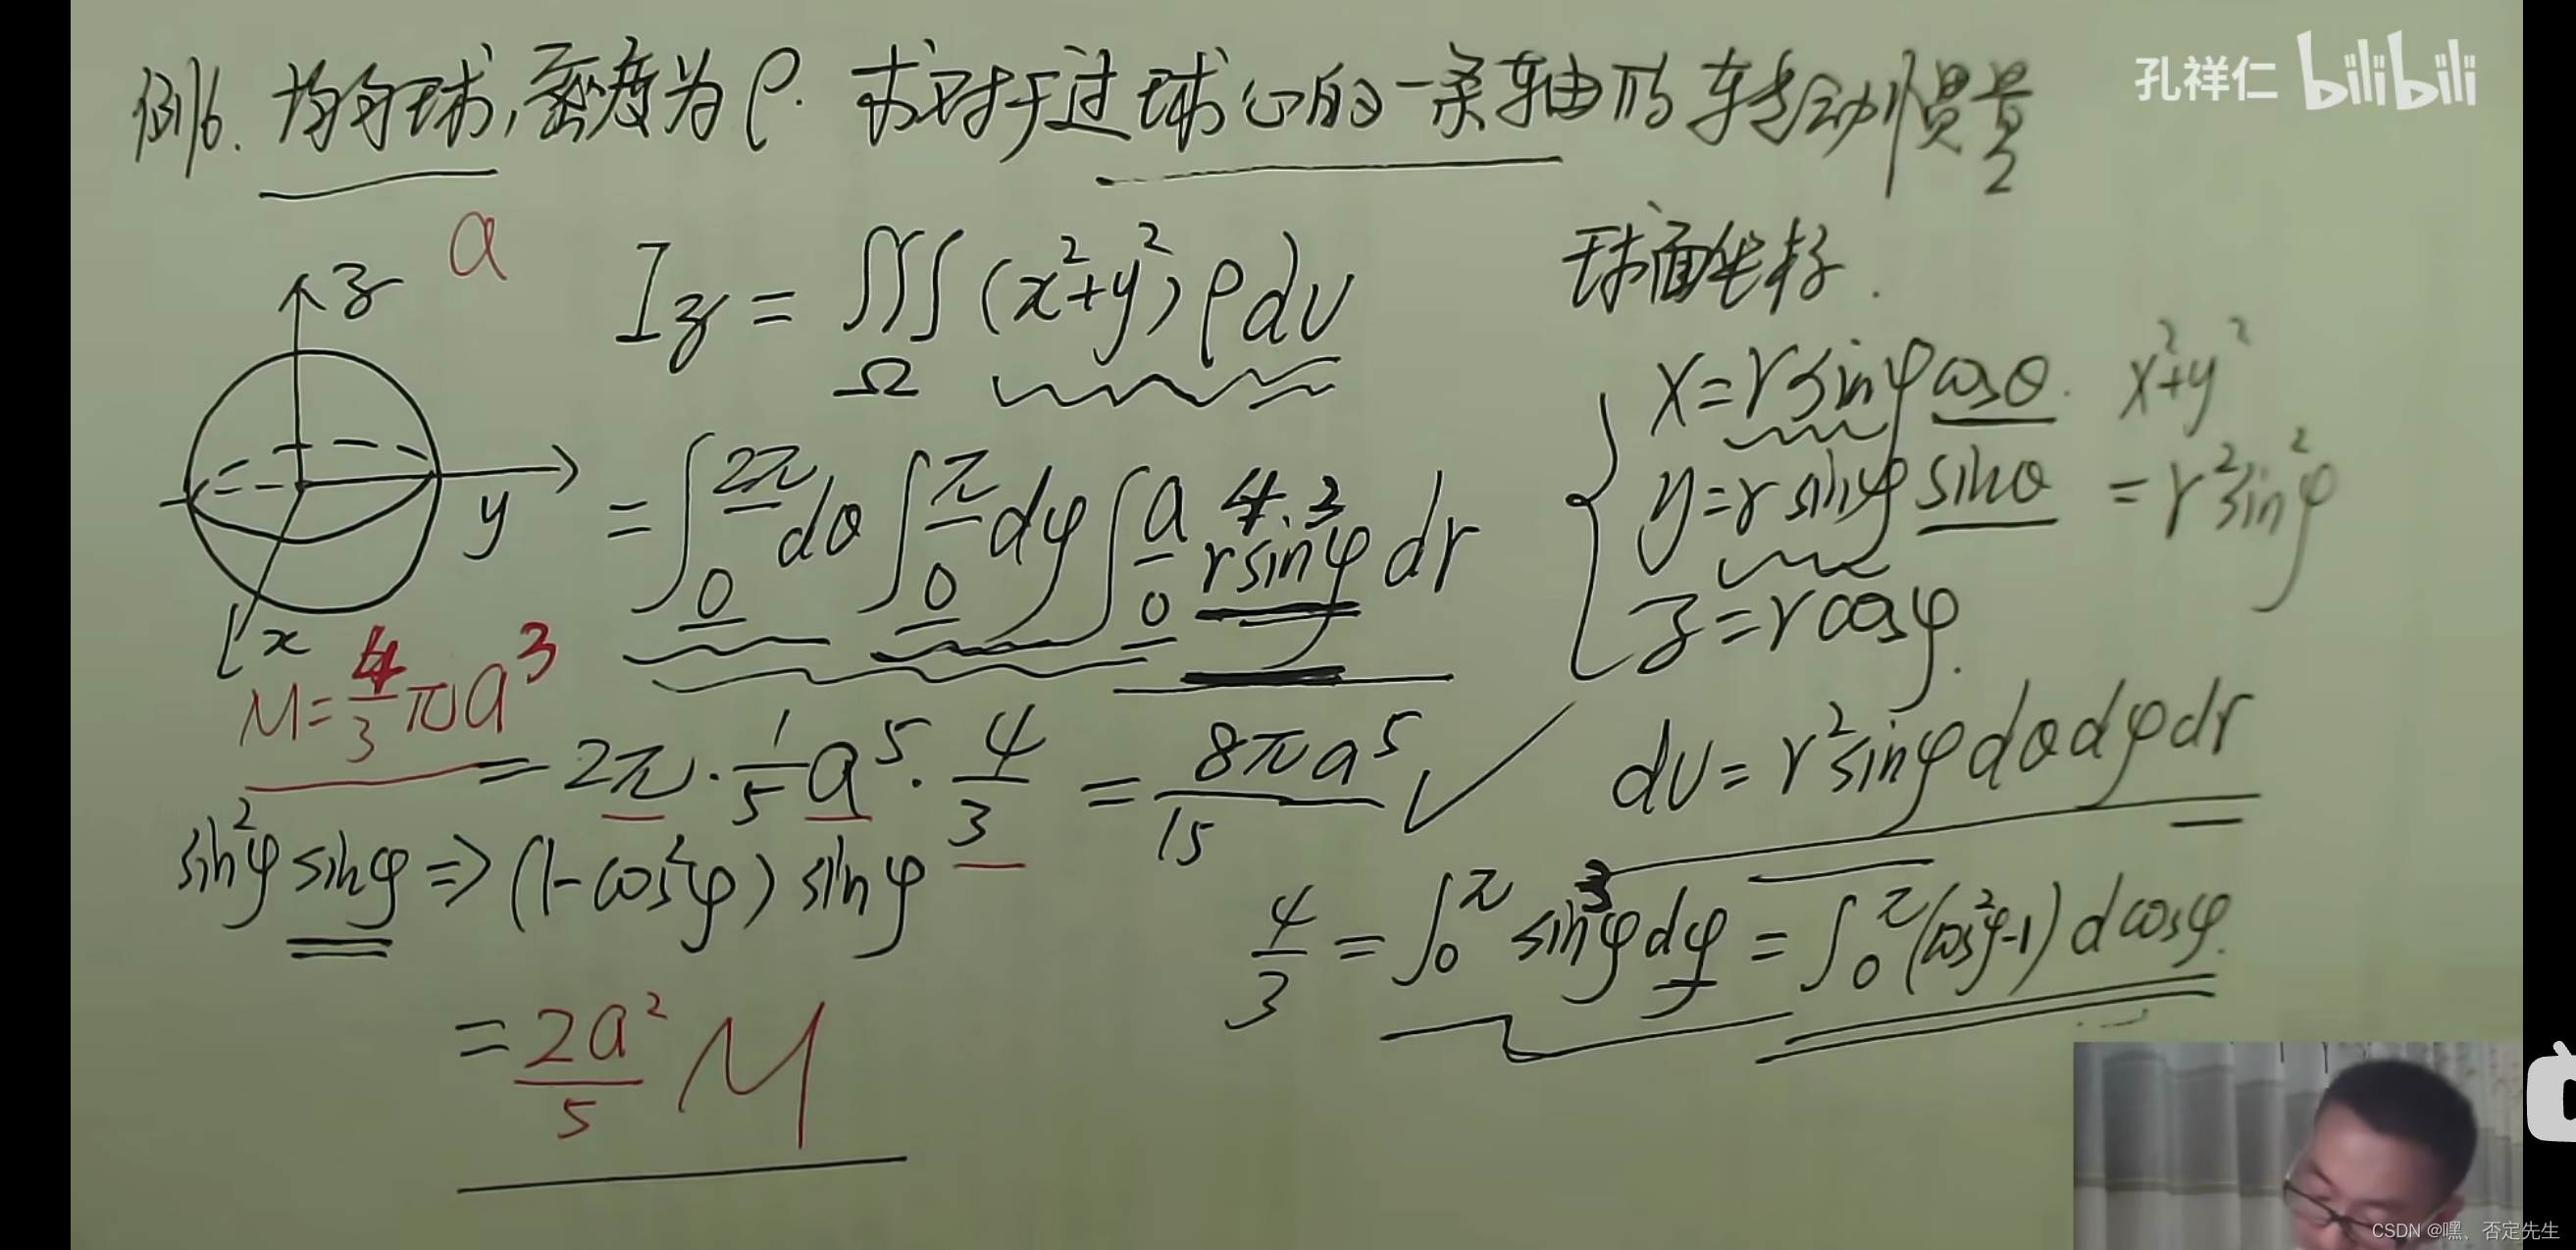 例6. 均匀球,密度为ρ. 求对于过球心的一条轴的转动惯量
孔祥仁 bilibili
a
z
y
x
I_z = ∭_Ω (x²+y²)ρdv
= ∫_0^{2π} dθ ∫_0^π dφ ∫_0^a r⁴sin³φ dr
M = 4/3 πa³
= 2π · 1/5 a⁵ · 4/3 = 8πa⁵/15
sin²φ sinφ ⇒ (1-cos²φ) sinφ
= 2a²/5 M
球面坐标.
x = r sinφ cosθ.
y = r sinφ sinθ
z = r cosφ.
x²+y²
= r²sin²φ
dv = r²sinφ dθ dφ dr
4/3 = ∫_0^π sin³φ dφ = ∫_0^π (cos²φ-1) d cosφ.
CSDN @嘿、否定先生